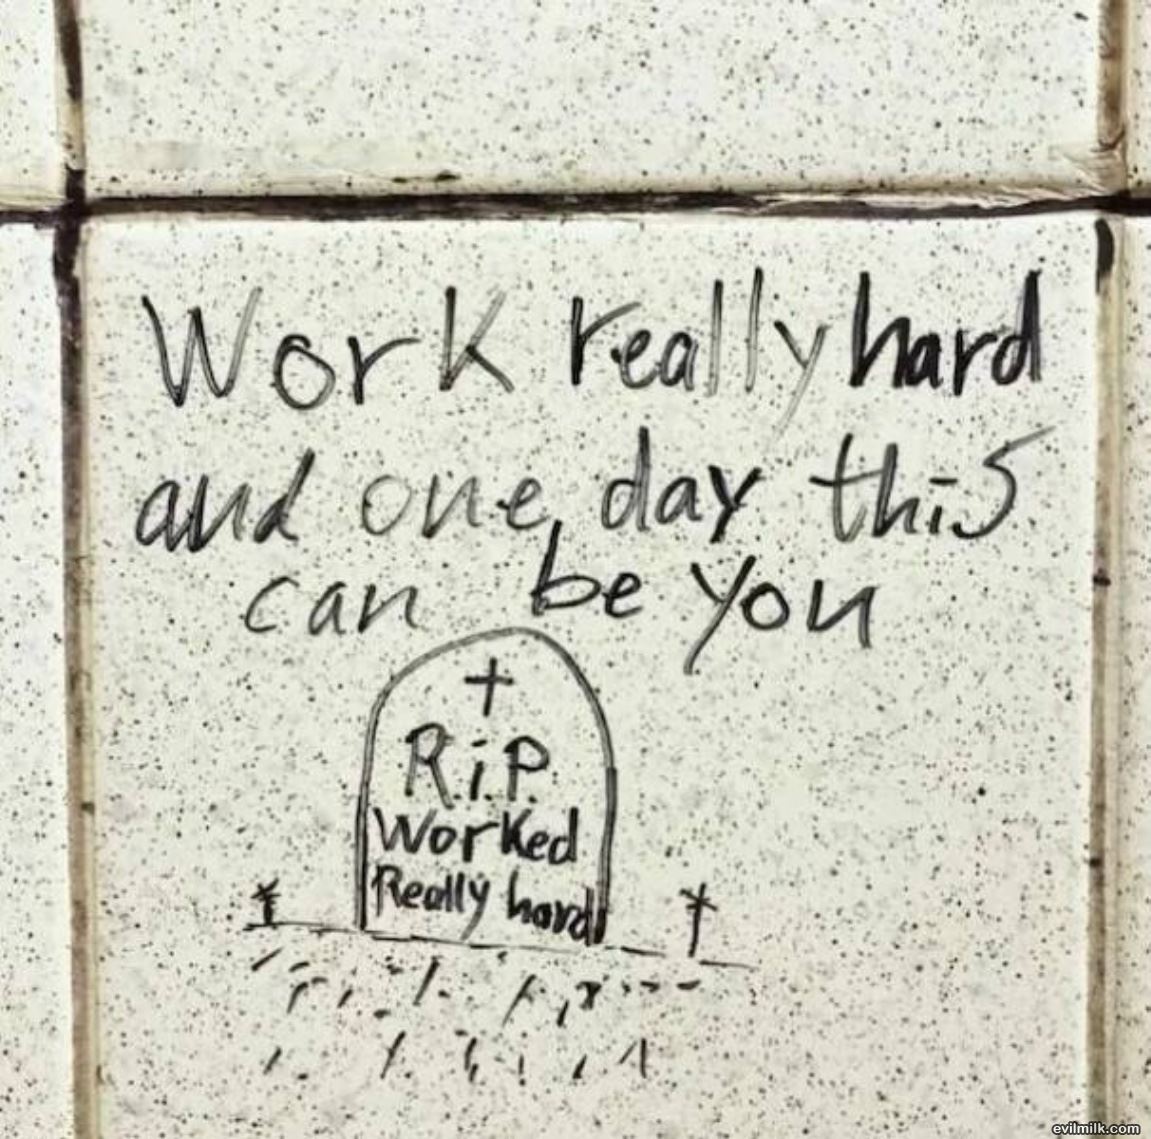 Work really hard
and one day this
can be you
R.i.P.
Worked
Really hard
evilmilk.com